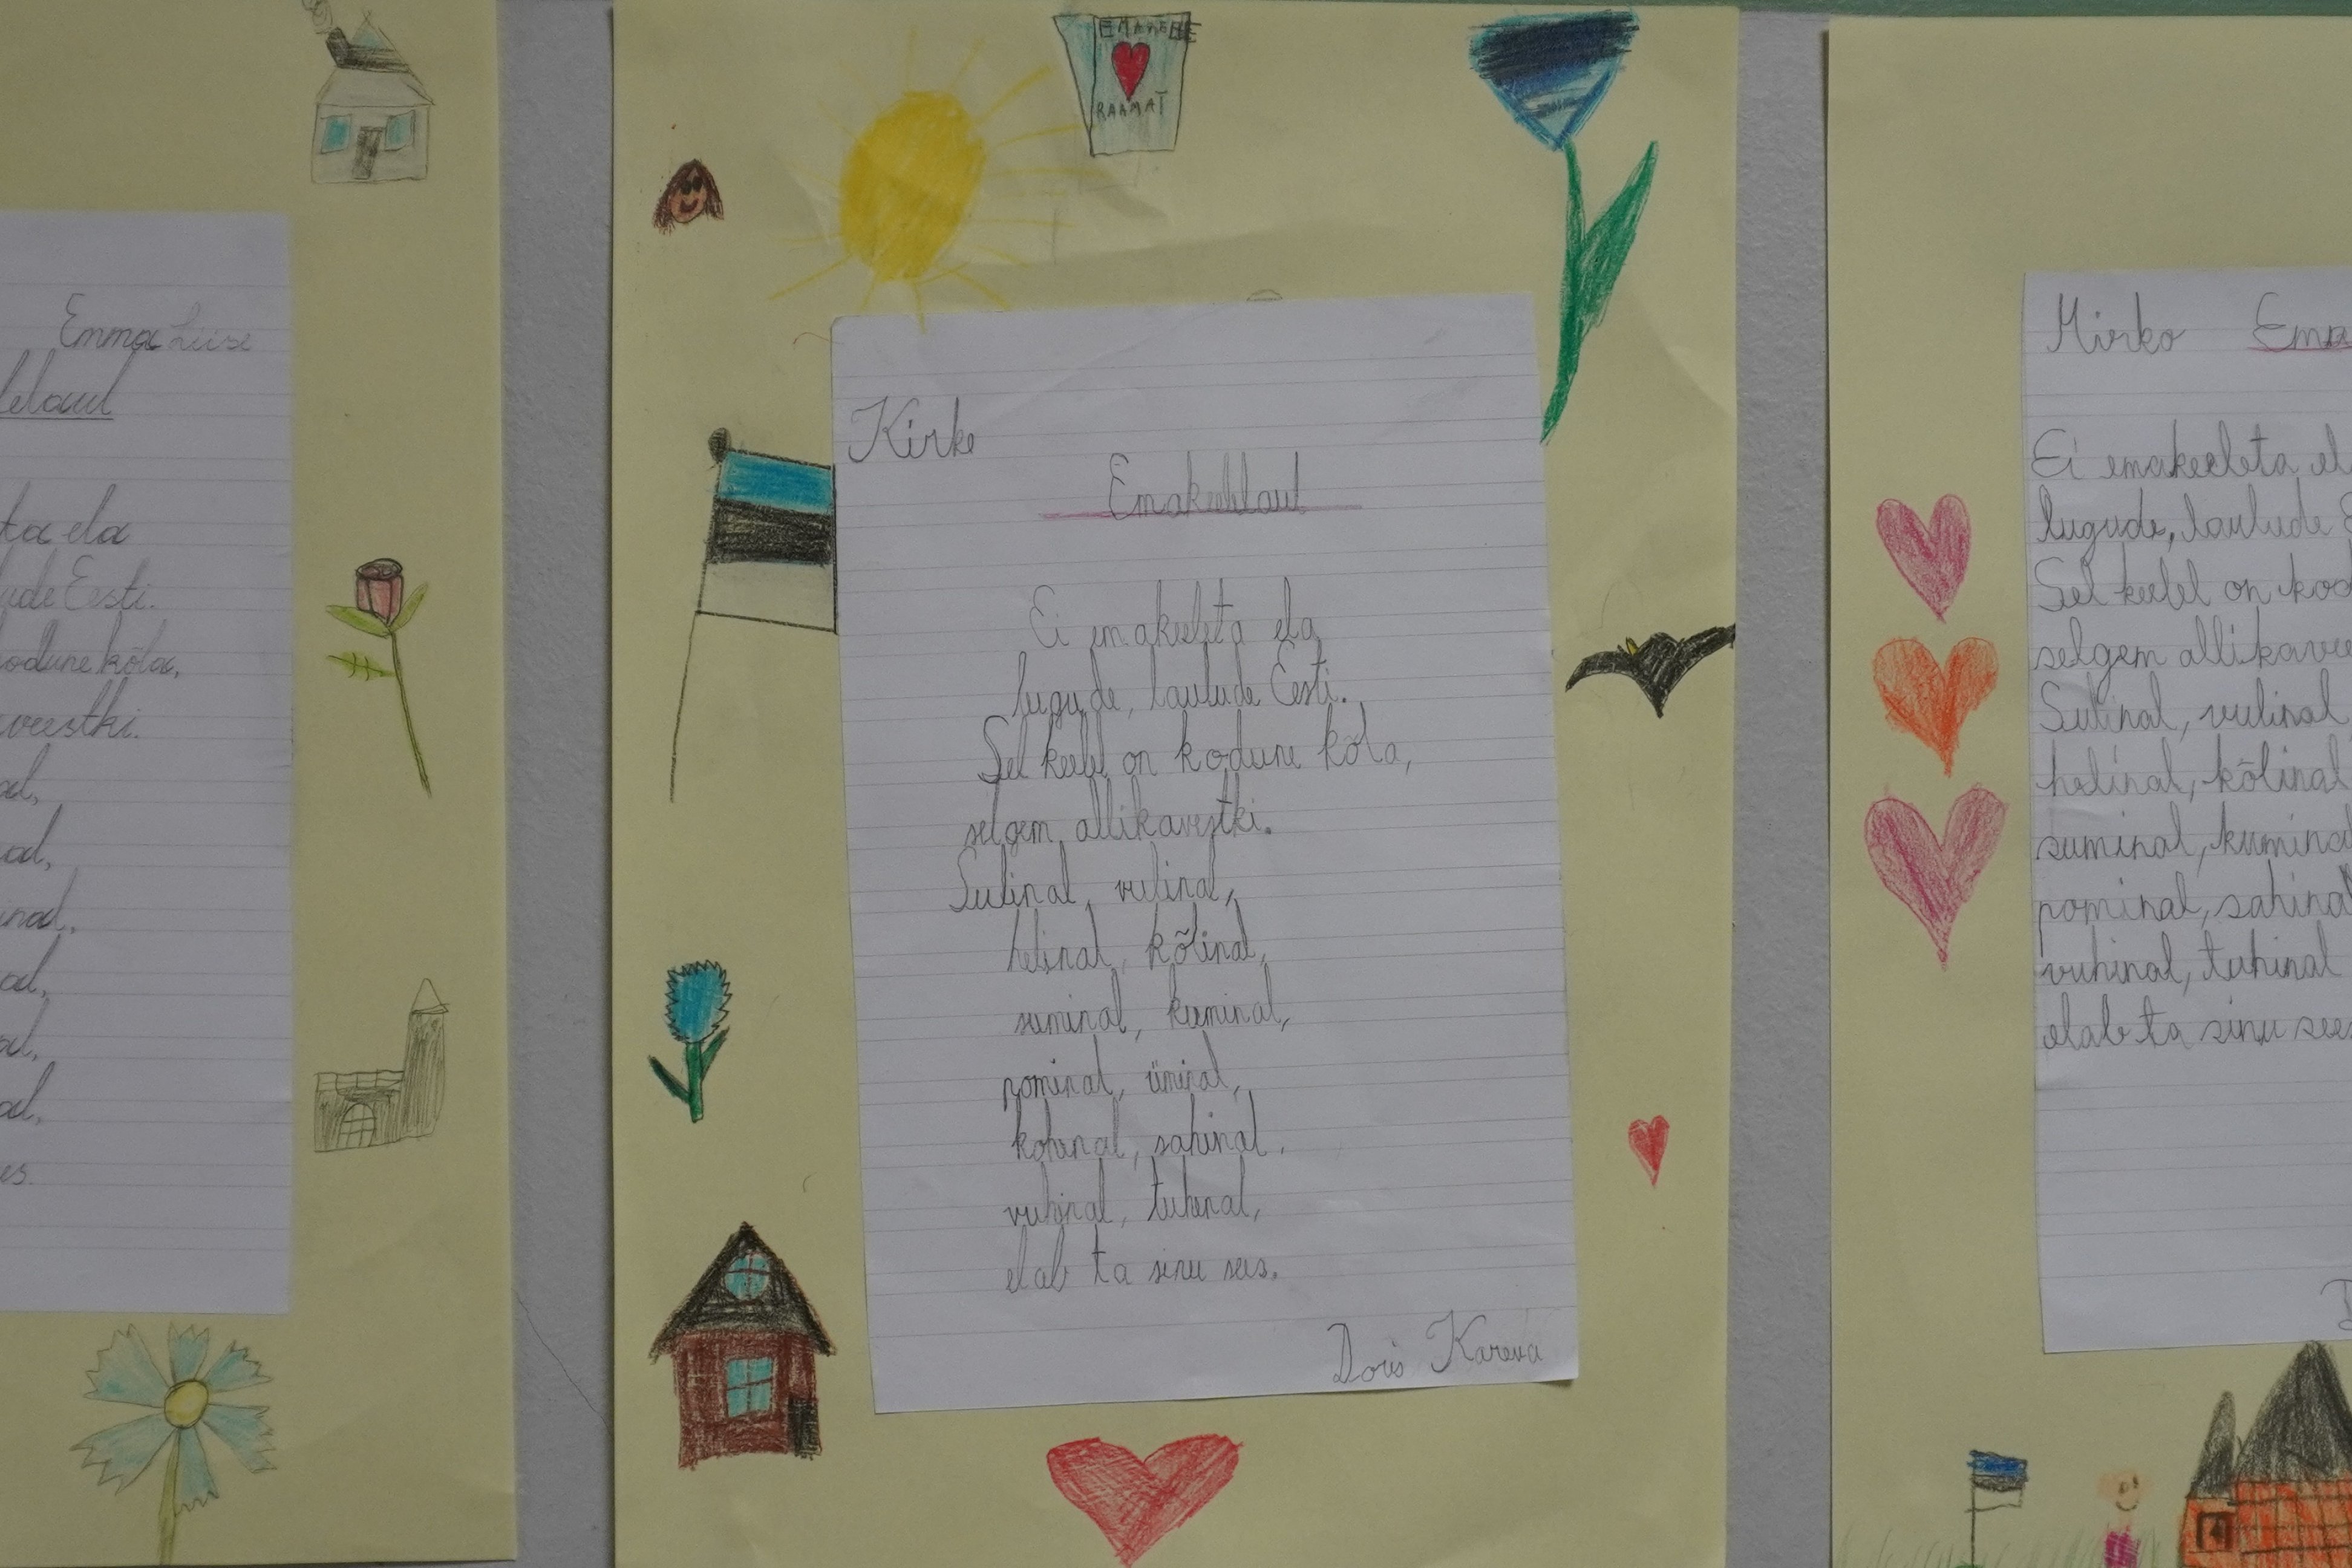 Emma Liise
lelaul
ta ela
ude Eesti.
odune kõla,
veestki.
al,
al,
inal,
al,
al,
al,
es.
EMAKEELE
RAAMAT
Kirke
Emakeelelaul
Ei emakeeleta ela
lugude, laulude Eesti.
Sel keelel on kodune kõla,
selgem allikavestki.
Sulinal, vulinal,
helinal, kõlinal,
suminal, kuminal,
pominal, üminal,
kohinal, sahinal,
vuhinal, tuhinal,
elab ta sinu sees.
Doris Kareva
Mirko Ema
Ei emakeeleta el
lugude, laulude E
Sel keelel on kod
selgem allikavee
Sulinal, vulinal,
helinal, kõlinal
suminal, kumina
pominal, sahinal
vuhinal, tuhinal
elab ta sinu sees